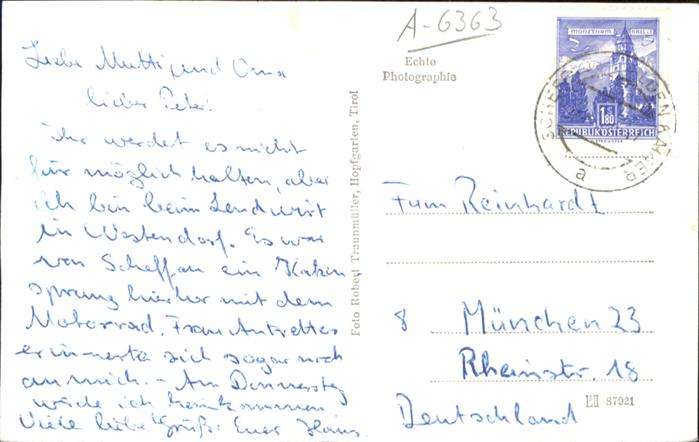 A-6363
Echte
Photographie
Liebe Mutti, und Oma
lieber Peter!
Ihr werdet es nicht
für möglich halten, aber
ich bin beim Lendwirt
in Westendorf. Es war
von Scheffau ein Katzen
sprung hierher mit dem
Motorrad. Frau Antretter
erinnerte sich sogar noch
an mich. – Am Donnerstag
werde ich heimkommen.
Viele liebe Grüße Euer Hans
Foto Robert Traunmüller, Hopfgarten, Tirol
MÜNZTURM HALL i.T.
S 1.80
REPUBLIK ÖSTERREICH
SCHEFFAU KAISER
a
Fam Reinhardt
8 München 23
Rheinstr. 18
Deutschland
87921